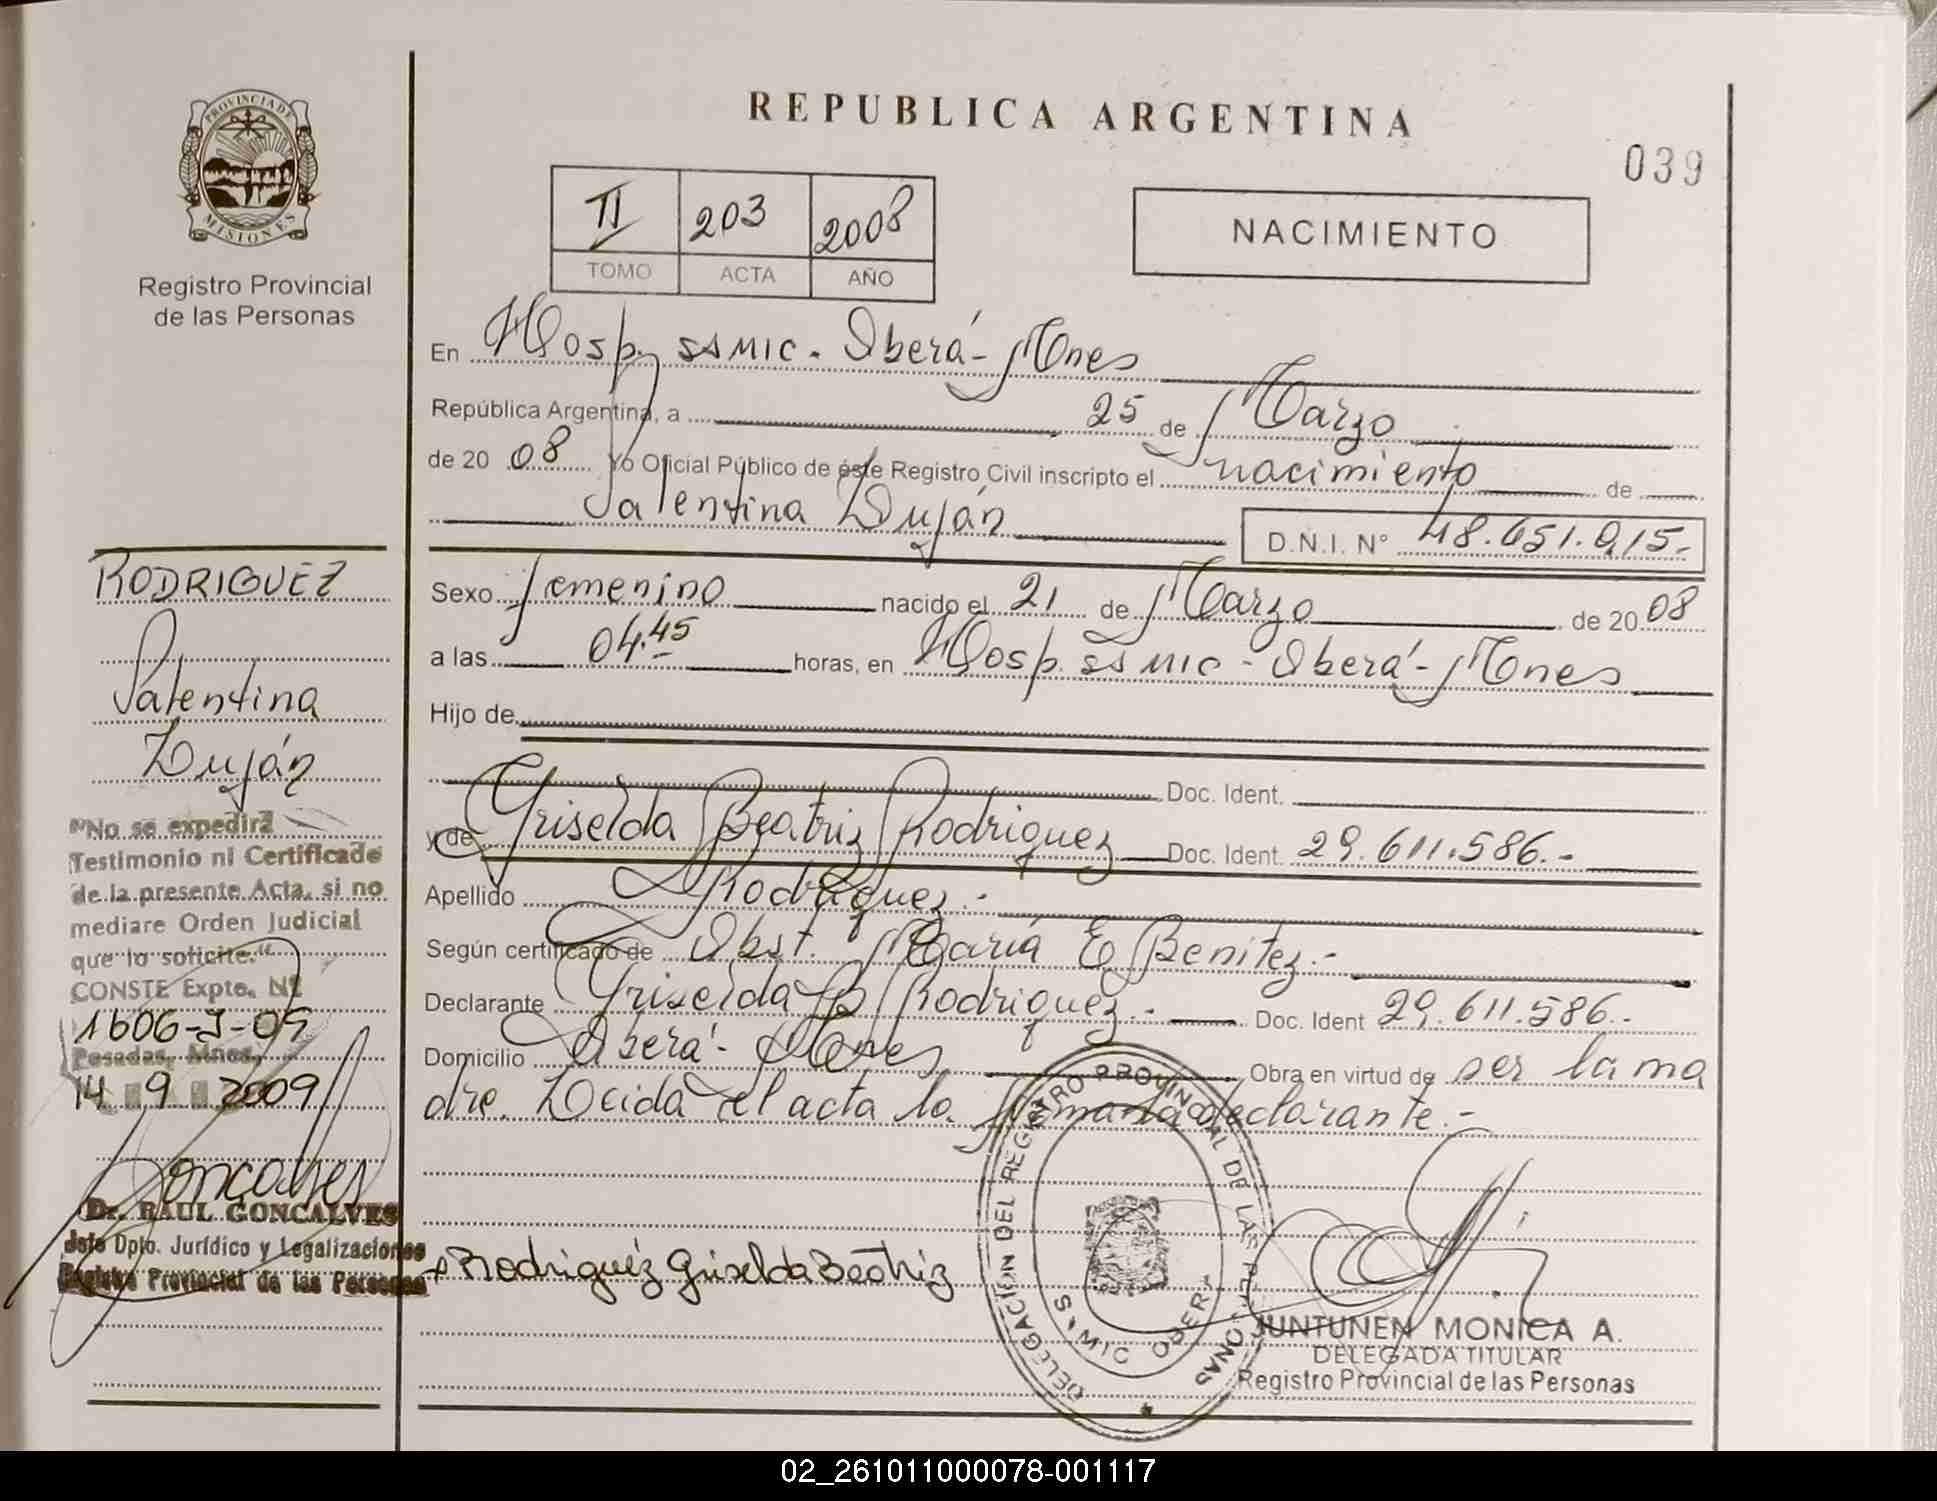 PROVINCIA DE
MISIONES
Registro Provincial
de las Personas
RODRIGUEZ
Valentina
Luján
"No se expedirá
Testimonio ni Certificado
de la presente Acta, si no
mediare Orden Judicial
que lo solicite."
CONSTE Expte. Nº
1606-J-09
Posadas, Mnes.
14 9 2009
Goncalves
Dr. RAUL GONCALVES
Jefe Dpto. Jurídico y Legalizaciones
Registro Provincial de las Personas
REPUBLICA ARGENTINA
039
II 203 2008
TOMO ACTA AÑO
NACIMIENTO
En Hosp. SAMIC. Oberá - Mnes
República Argentina, a 25 de Marzo
de 20 08 Yo Oficial Público de éste Registro Civil inscripto el nacimiento de
Valentina Luján D.N.I. Nº 48.651.015.-
Sexo femenino nacido el 21 de Marzo de 20 08
a las 04.45 horas, en Hosp. SAMIC - Oberá - Mnes
Hijo de
Doc. Ident.
y de Griselda Beatriz Rodriguez Doc. Ident. 29.611.586.-
Apellido Rodriguez.-
Según certificado de Obst. María E Benitez.-
Declarante Griselda B Rodriguez.- Doc. Ident 29.611.586.-
Domicilio Oberá - Mnes Obra en virtud de ser la ma
dre. Leida el acta la firma la declarante.-
Rodriguez Griselda Beatriz
DELEGACIÓN DEL REGISTRO PROVINCIAL DE LAS PERSONAS
SAMIC OBERA
JUNTUNEN MONICA A.
DELEGADA TITULAR
Registro Provincial de las Personas
02_261011000078-001117